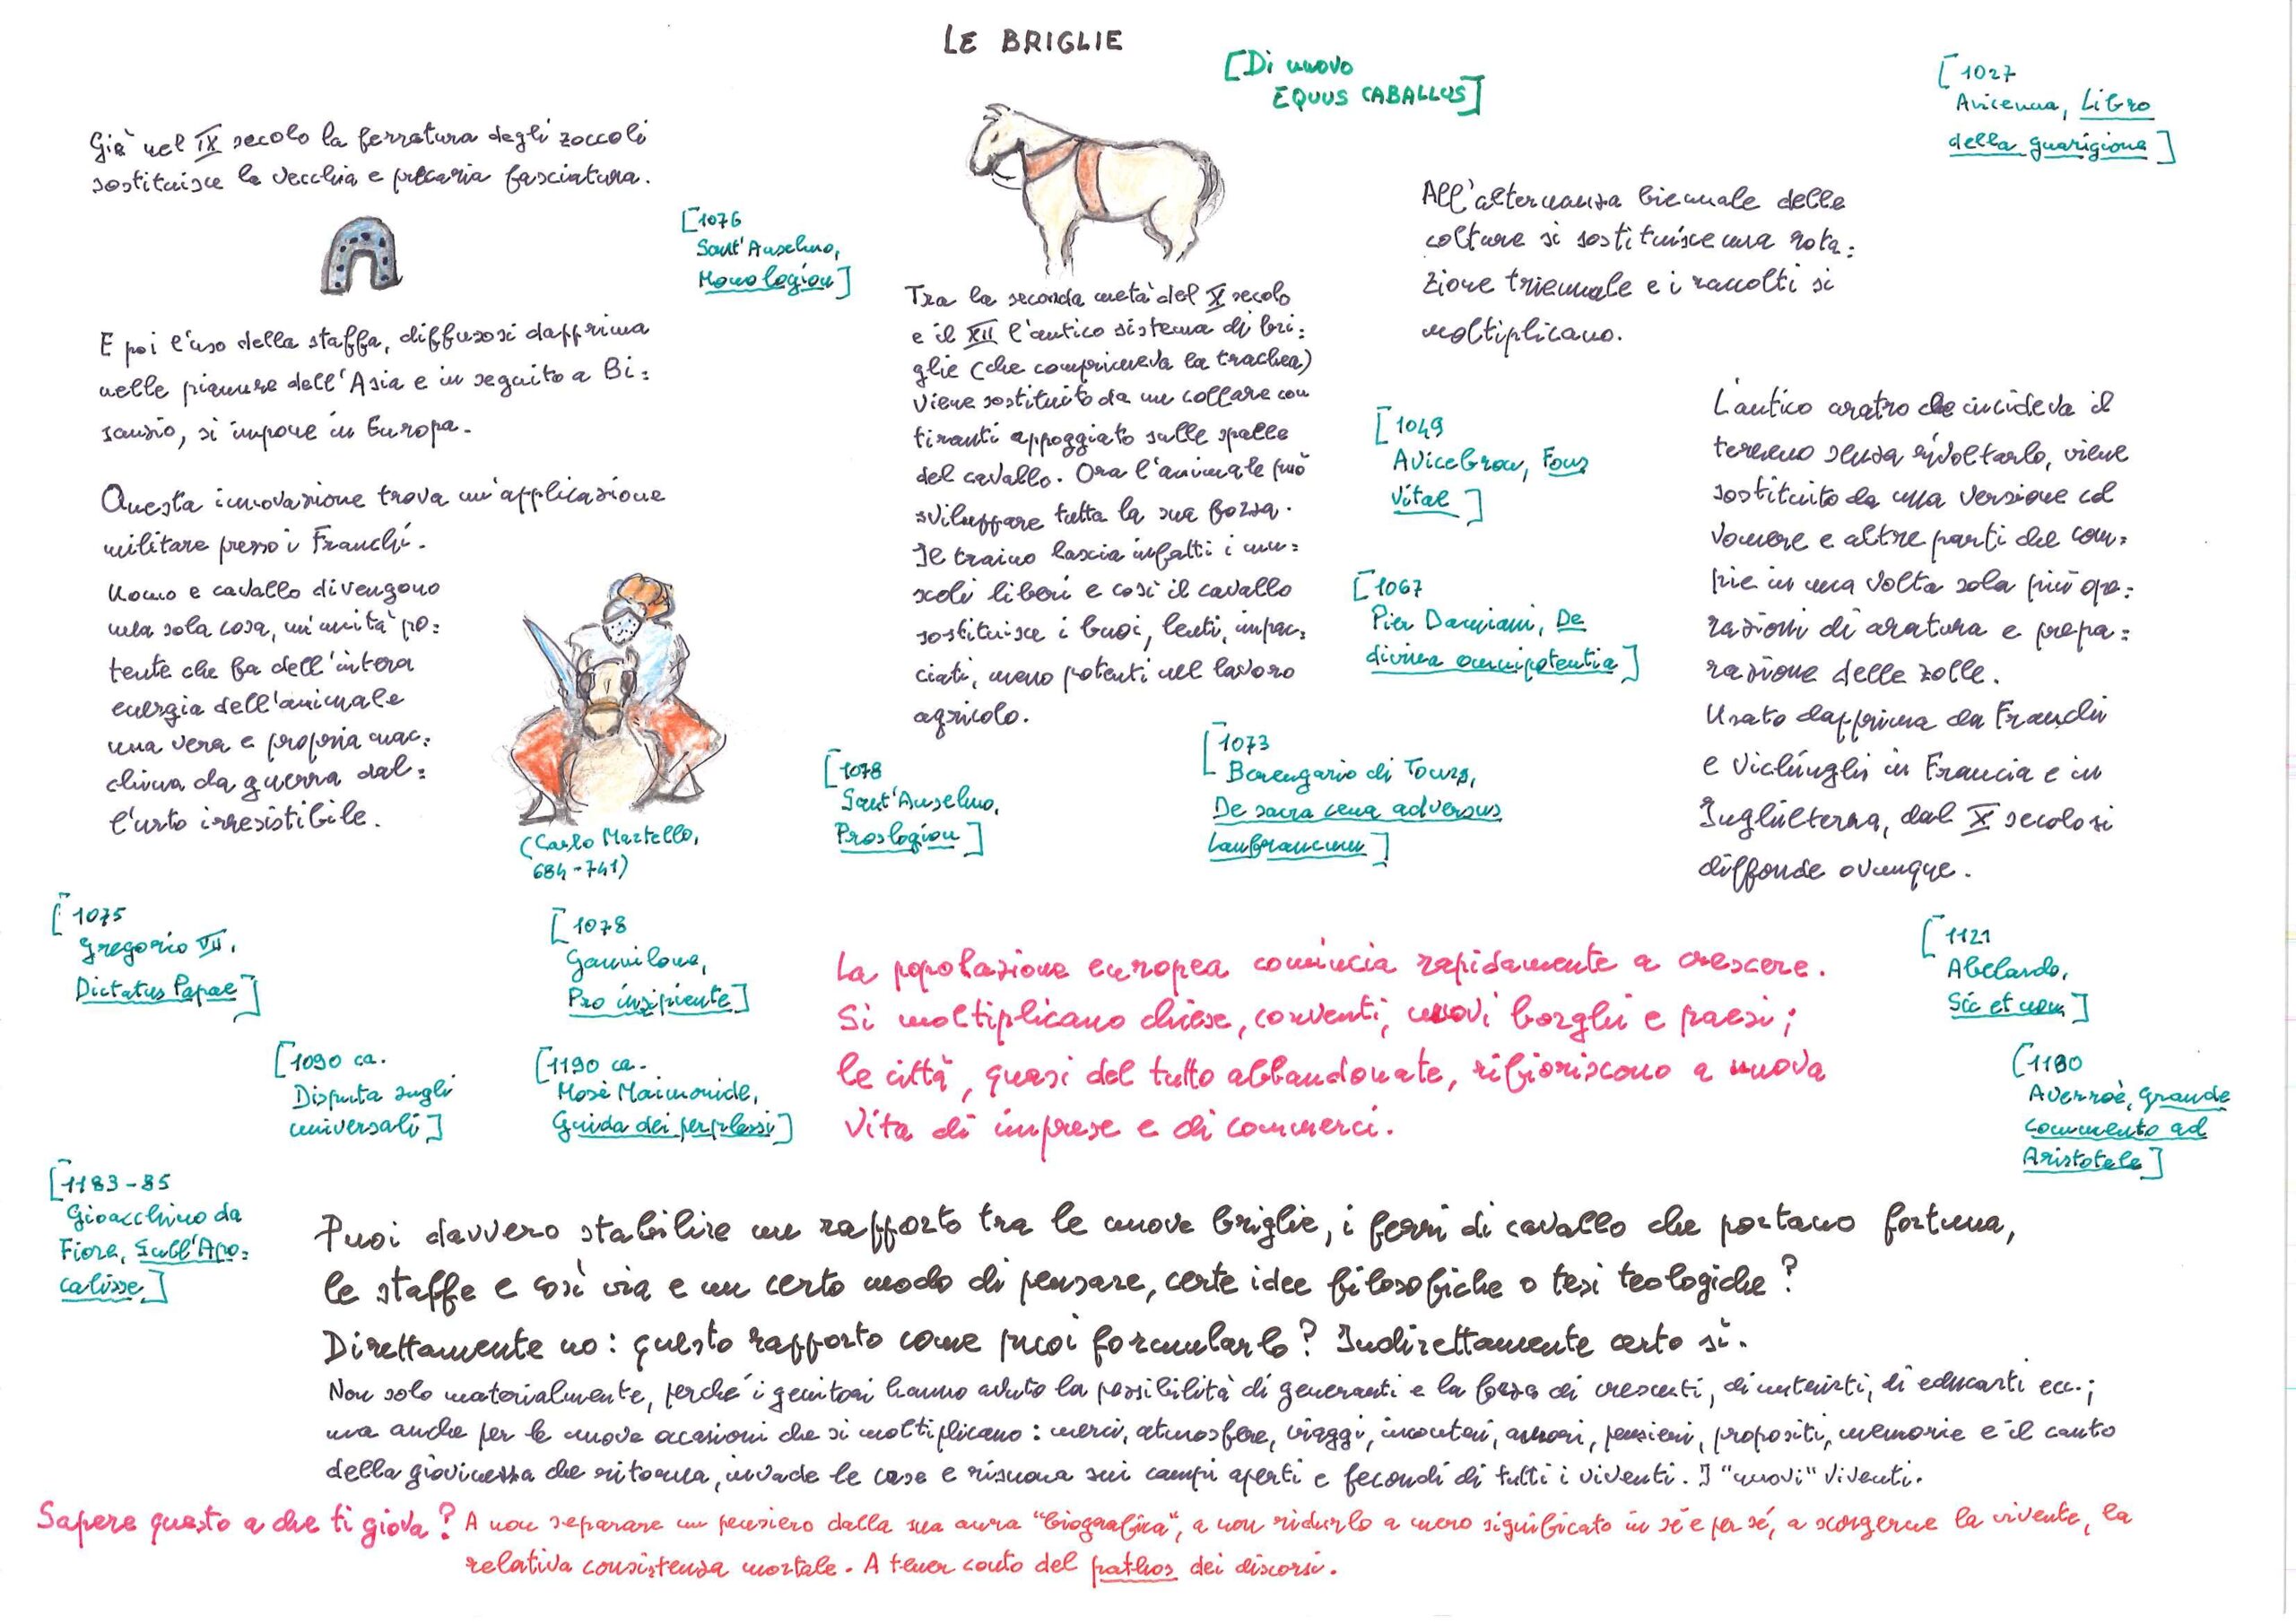 LE BRIGLIE
[Di nuovo
EQUUS CABALLUS]
[1027
Avicenna, Libro
della guarigione]
Già nel IX secolo la ferratura degli zoccoli
sostituisce la vecchia e precaria fasciatura.
[1076
Sant'Anselmo,
Monologion]
E poi l'uso della staffa, diffusosi dapprima
nelle pianure dell'Asia e in seguito a Bi=
sanzio, si impone in Europa.
Questa innovazione trova un'applicazione
militare presso i Franchi.
Uomo e cavallo divengono
una sola cosa, un'unità po=
tente che fa dell'intera
energia dell'animale
una vera e propria mac=
china da guerra dal=
l'urto irresistibile.
(Carlo Martello,
684-741)
Tra la seconda metà del X secolo
e il XII l'antico sistema di bri=
glie (che comprimeva la trachea)
viene sostituito da un collare con
tiranti appoggiato sulle spalle
del cavallo. Ora l'animale può
sviluppare tutta la sua forza.
Il traino lascia infatti i mu=
scoli liberi e così il cavallo
sostituisce i buoi, lenti, impac=
ciati, meno potenti nel lavoro
agricolo.
All'alternanza biennale delle
colture si sostituisce una rota=
zione triennale e i raccolti si
moltiplicano.
[1049
Avicebron, Fons
Vitae]
[1067
Pier Damiani, De
divina omnipotentia]
[1073
Berengario di Tours,
De sacra cena adversus
Lanfrancum]
[1078
Sant'Anselmo,
Proslogion]
L'antico aratro che incideva il
terreno senza rivoltarlo, viene
sostituito da una versione col
vomere e altre parti che com=
pie in una volta sola più ope=
razioni di aratura e prepa=
razione delle zolle.
Usato dapprima da Franchi
e Vichinghi in Francia e in
Inghilterra, dal X secolo si
diffonde ovunque.
[1075
Gregorio VII,
Dictatus Papae]
[1078
Gaunilone,
Pro insipiente]
[1090 ca.
Disputa sugli
universali]
[1190 ca.
Mosè Maimonide,
Guida dei perplessi]
La popolazione europea comincia rapidamente a crescere.
Si moltiplicano chiese, conventi, nuovi borghi e paesi;
le città, quasi del tutto abbandonate, rifioriscono a nuova
vita di imprese e di commerci.
[1121
Abelardo,
Sic et non]
[1180
Averroè, Grande
commento ad
Aristotele]
[1183-85
Gioacchino da
Fiore, Sull'Apo=
calisse]
Puoi davvero stabilire un rapporto tra le nuove briglie, i ferri di cavallo che portano fortuna,
le staffe e così via e un certo modo di pensare, certe idee filosofiche o tesi teologiche?
Direttamente no: questo rapporto come puoi formularlo? Indirettamente certo sì.
Non solo materialmente, perché i genitori hanno avuto la possibilità di generarti e la forza di crescerti, di nutrirti, di educarti ecc.;
ma anche per le nuove occasioni che si moltiplicano: merci, atmosfere, viaggi, incontri, amori, pensieri, propositi, memorie e il canto
della giovinezza che ritorna, invade le case e risuona sui campi aperti e fecondi di tutti i viventi. I "nuovi" viventi.
Sapere questo a che ti giova? A non separare un pensiero dalla sua aura "biografica", a non ridurlo a mero significato in sé e per sé, a scorgerne la vivente, la
relativa consistenza mortale. A tener conto del pathos dei discorsi.